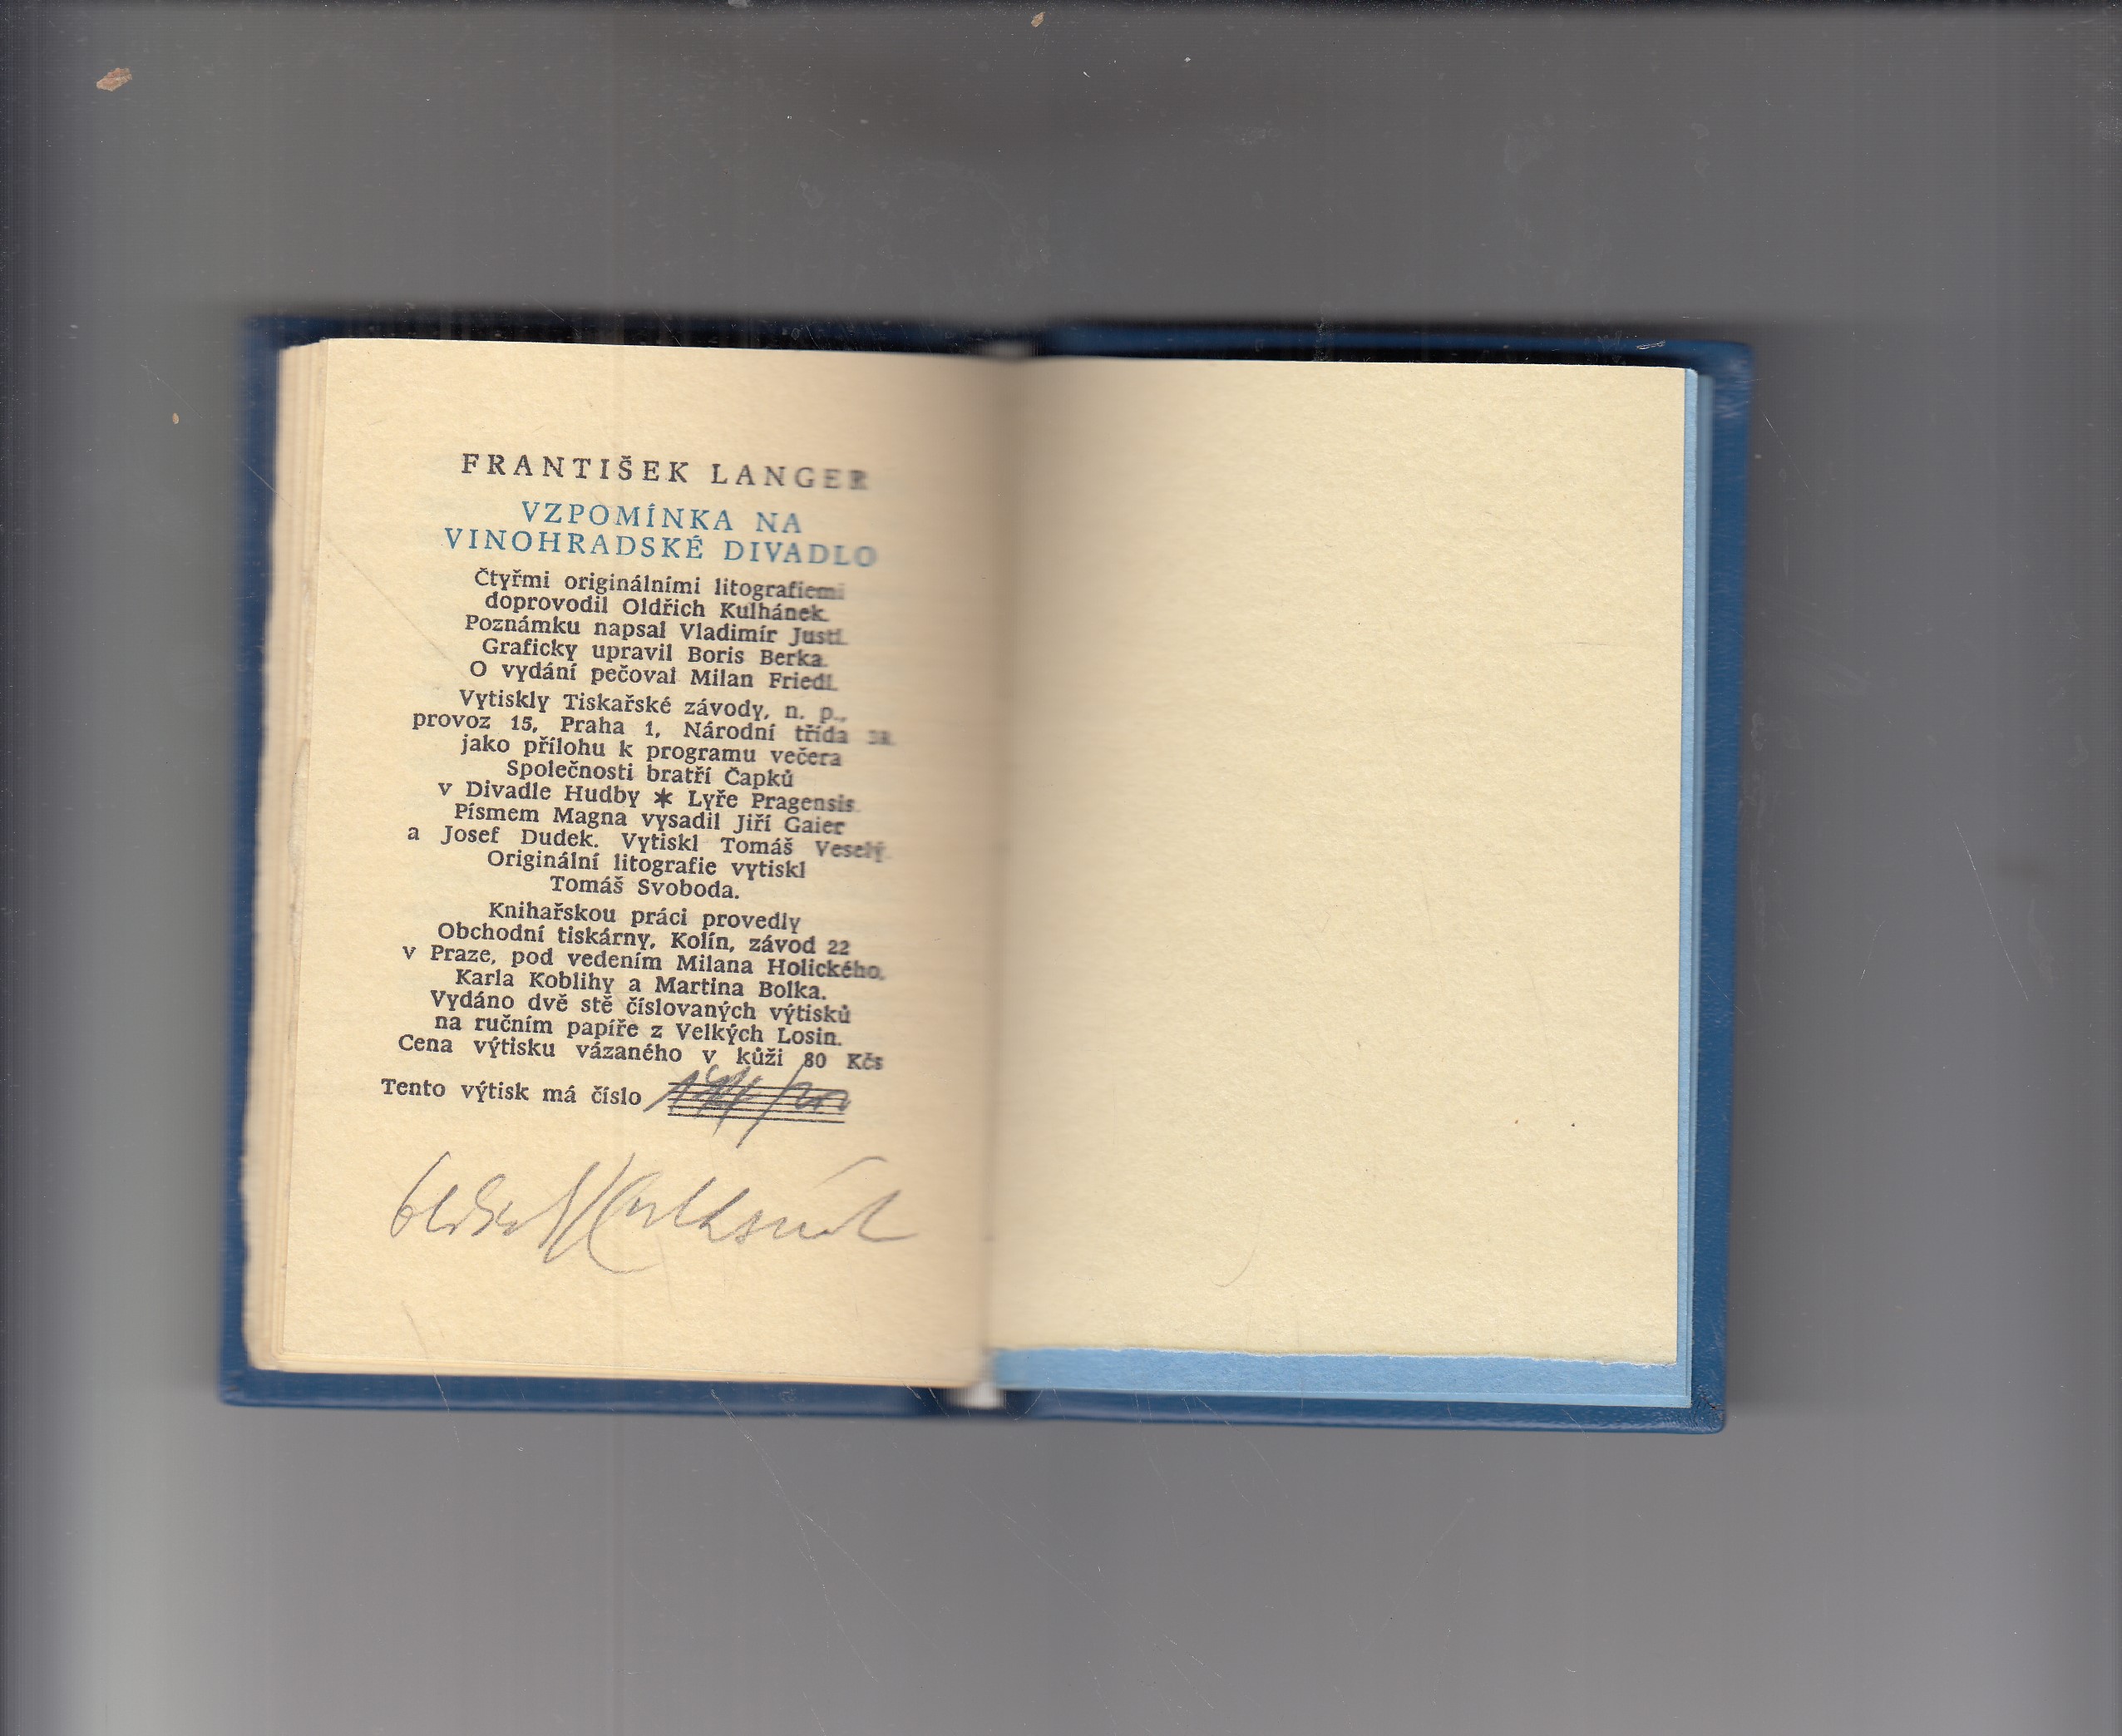 FRANTIŠEK LANGER
VZPOMÍNKA NA
VINOHRADSKÉ DIVADLO
Čtyřmi originálními litografiemi
doprovodil Oldřich Kulhánek.
Poznámku napsal Vladimír Justl.
Graficky upravil Boris Berka.
O vydání pečoval Milan Friedl.
Vytiskly Tiskařské závody, n. p.,
provoz 15, Praha 1, Národní třída
jako přílohu k programu večera
Společnosti bratří Čapků
v Divadle Hudby * Lyře Pragensis.
Písmem Magna vysadil Jiří Gaier
a Josef Dudek. Vytiskl Tomáš Veselý.
Originální litografie vytiskl
Tomáš Svoboda.
Knihařskou práci provedly
Obchodní tiskárny, Kolín, závod 22
v Praze, pod vedením Milana Holického,
Karla Koblihy a Martina Bolka.
Vydáno dvě stě číslovaných výtisků
na ručním papíře z Velkých Losin.
Cena výtisku vázaného v kůži 80 Kčs
Tento výtisk má číslo